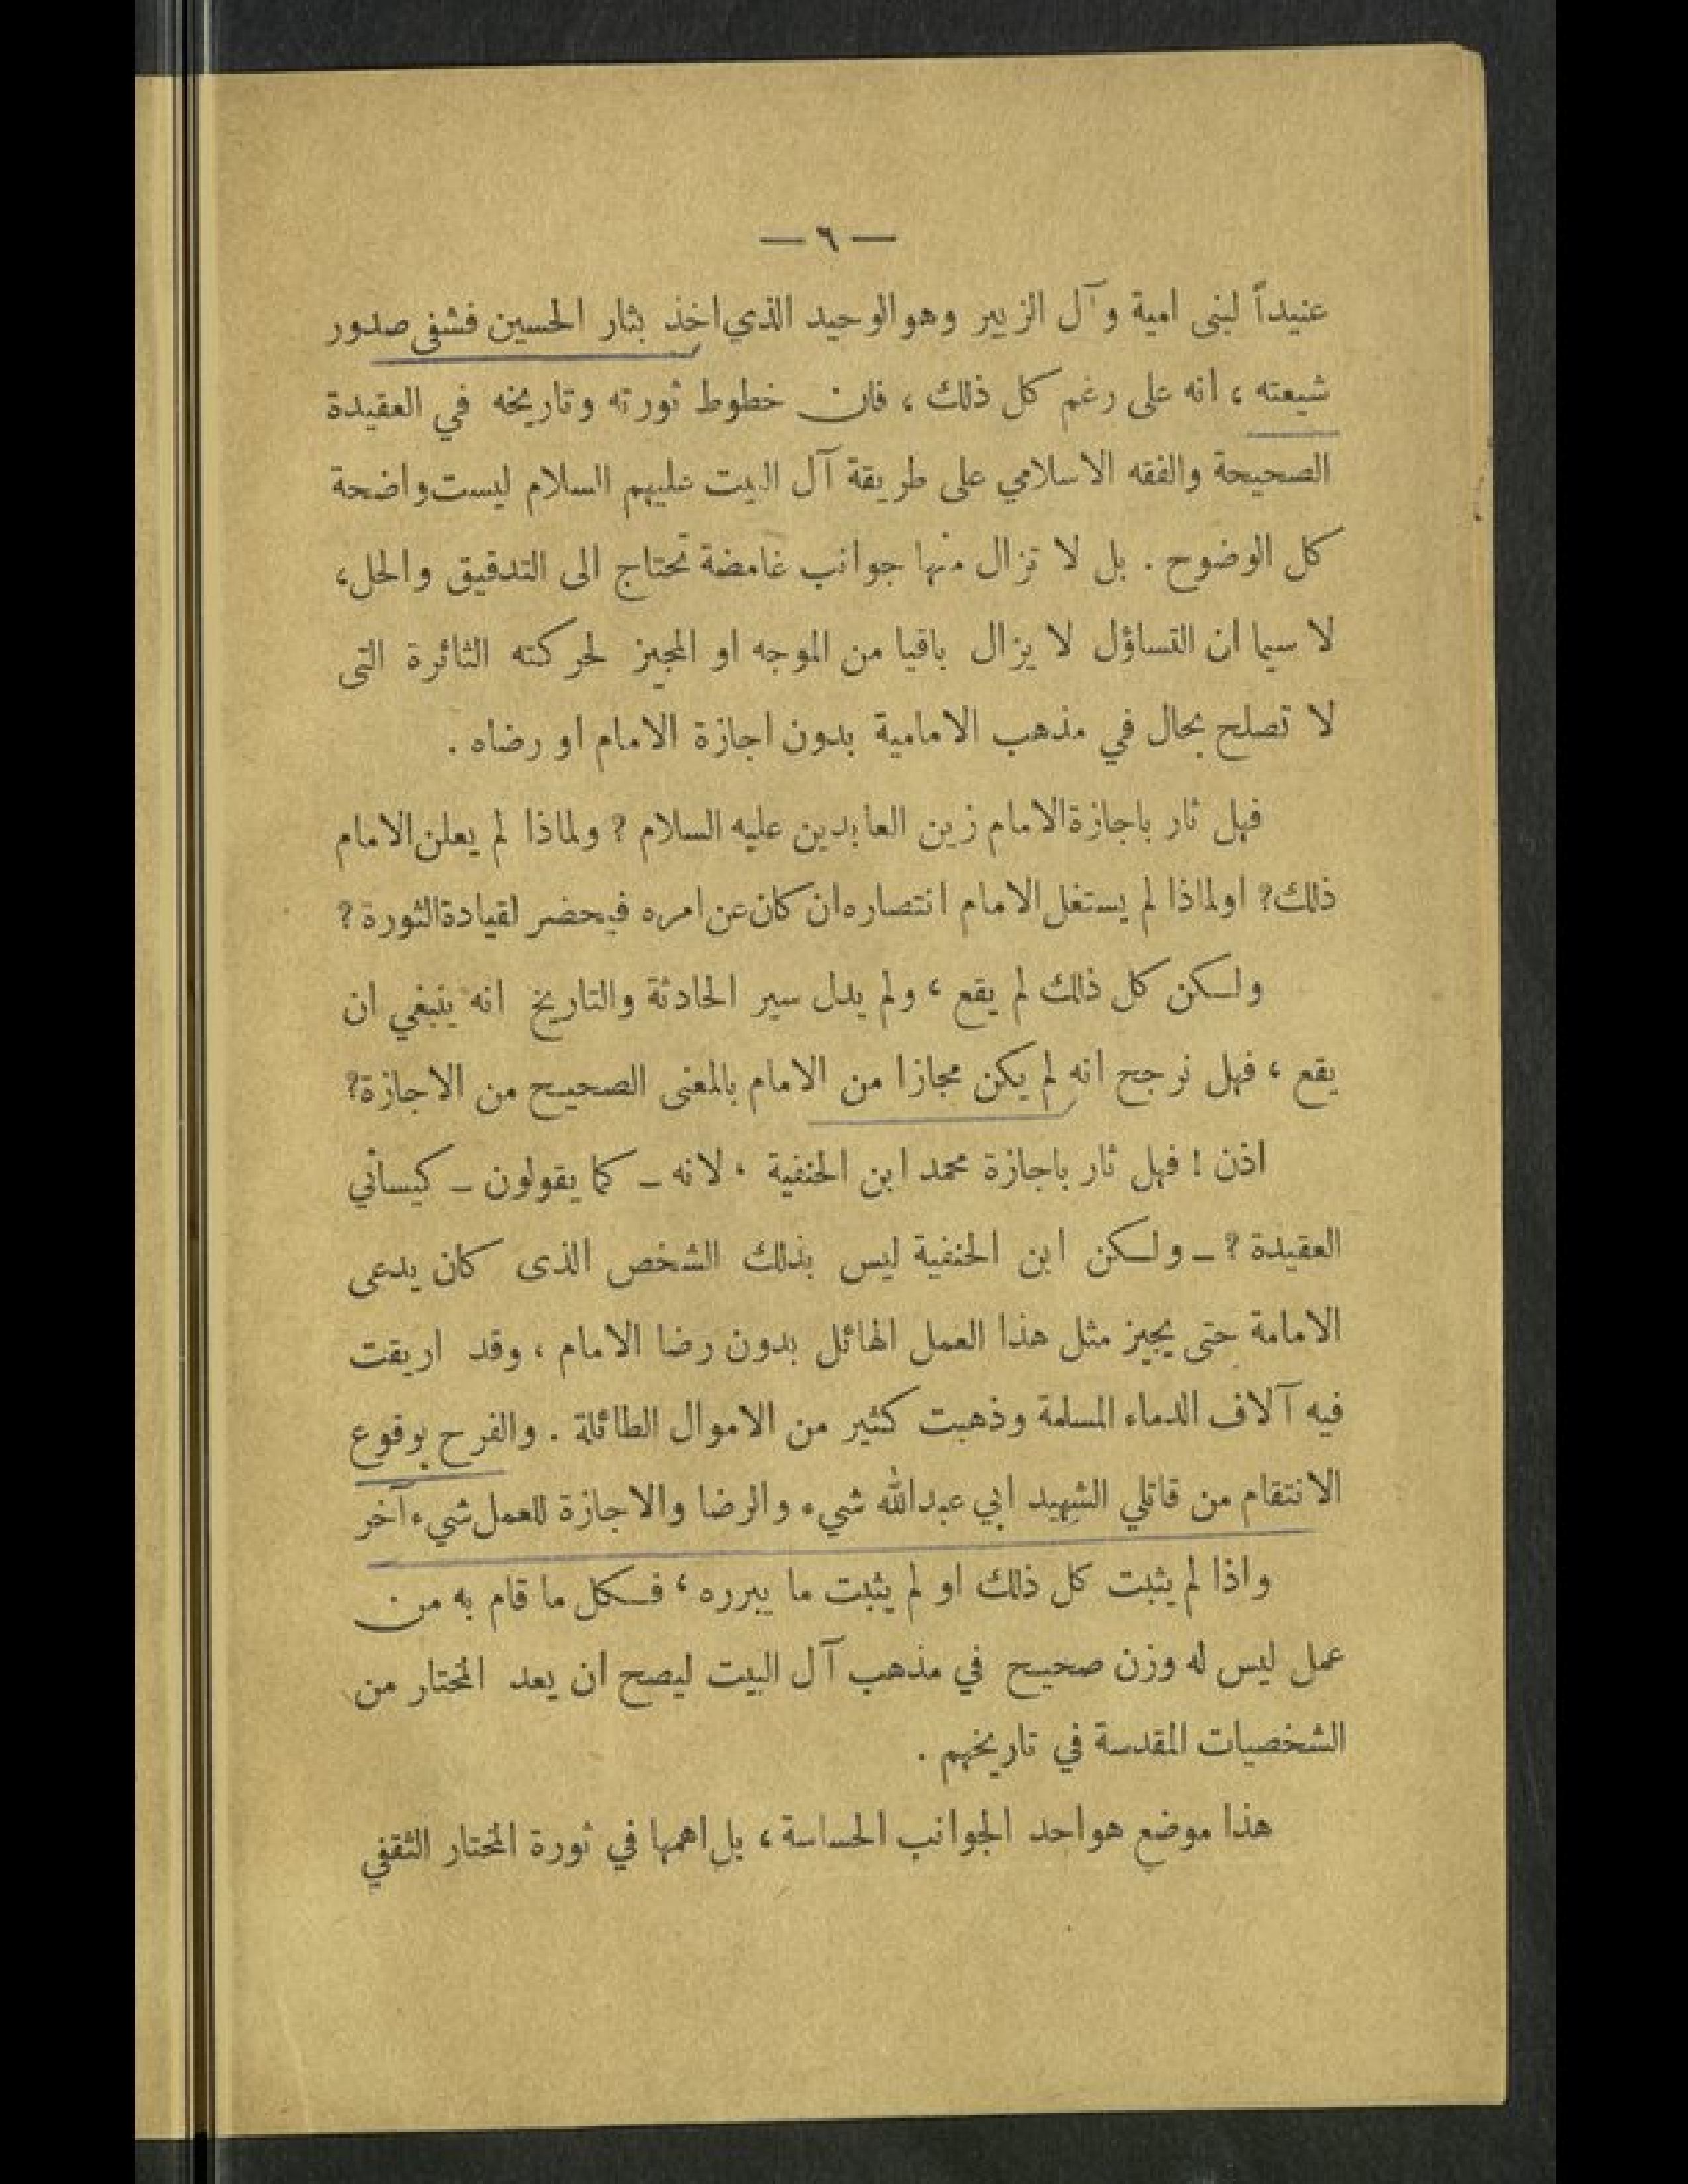 — ٦ —
عنيداً لبنى امية وآل الزبير وهو الوحيد الذي اخذ بثار الحسين فشفى صدور
شيعته ، انه على رغم كل ذلك ، فان خطوط ثورته وتاريخه في العقيدة
الصحيحة والفقه الاسلامي على طريقة آل البيت عليهم السلام ليست واضحة
كل الوضوح . بل لا تزال منها جوانب غامضة تحتاج الى التدقيق والحل ،
لا سيما ان التساؤل لا يزال باقيا من الموجه او المجيز لحركته الثائرة التى
لا تصلح بحال في مذهب الامامية بدون اجازة الامام او رضاه .
فهل ثار باجازة الامام زين العابدين عليه السلام ? ولماذا لم يعلن الامام
ذلك ? او لماذا لم يستغل الامام انتصاره ان كان عن امره فيحضر لقيادة الثورة ?
ولكن كل ذلك لم يقع ، ولم يدل سير الحادثة والتاريخ انه ينبغي ان
يقع ، فهل نرجح انه لم يكن مجازا من الامام بالمعنى الصحيح من الاجازة ?
اذن ! فهل ثار باجازة محمد ابن الحنفية ، لانه ـ كما يقولون ـ كيساني
العقيدة ? ـ ولكن ابن الحنفية ليس بذلك الشخص الذى كان يدعى
الامامة حتى يجيز مثل هذا العمل الهائل بدون رضا الامام ، وقد اريقت
فيه آلاف الدماء المسلمة وذهبت كثير من الاموال الطائلة . والفرح بوقوع
الانتقام من قاتلي الشهيد ابي عبدالله شيء والرضا والاجازة للعمل شيء آخر
واذا لم يثبت كل ذلك او لم يثبت ما يبرره ، فكل ما قام به من
عمل ليس له وزن صحيح في مذهب آل البيت ليصح ان يعد المختار من
الشخصيات المقدسة في تاريخهم .
هذا موضع هو احد الجوانب الحساسة ، بل اهمها في ثورة المختار الثقفي